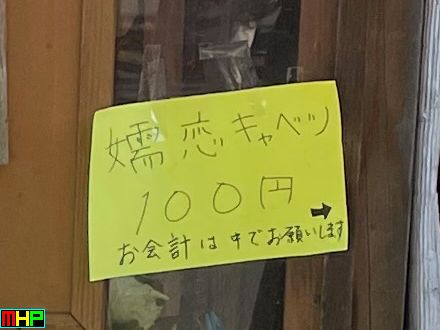 嬬恋キャベツ
100円
➡
お会計は中でお願いします
MHP